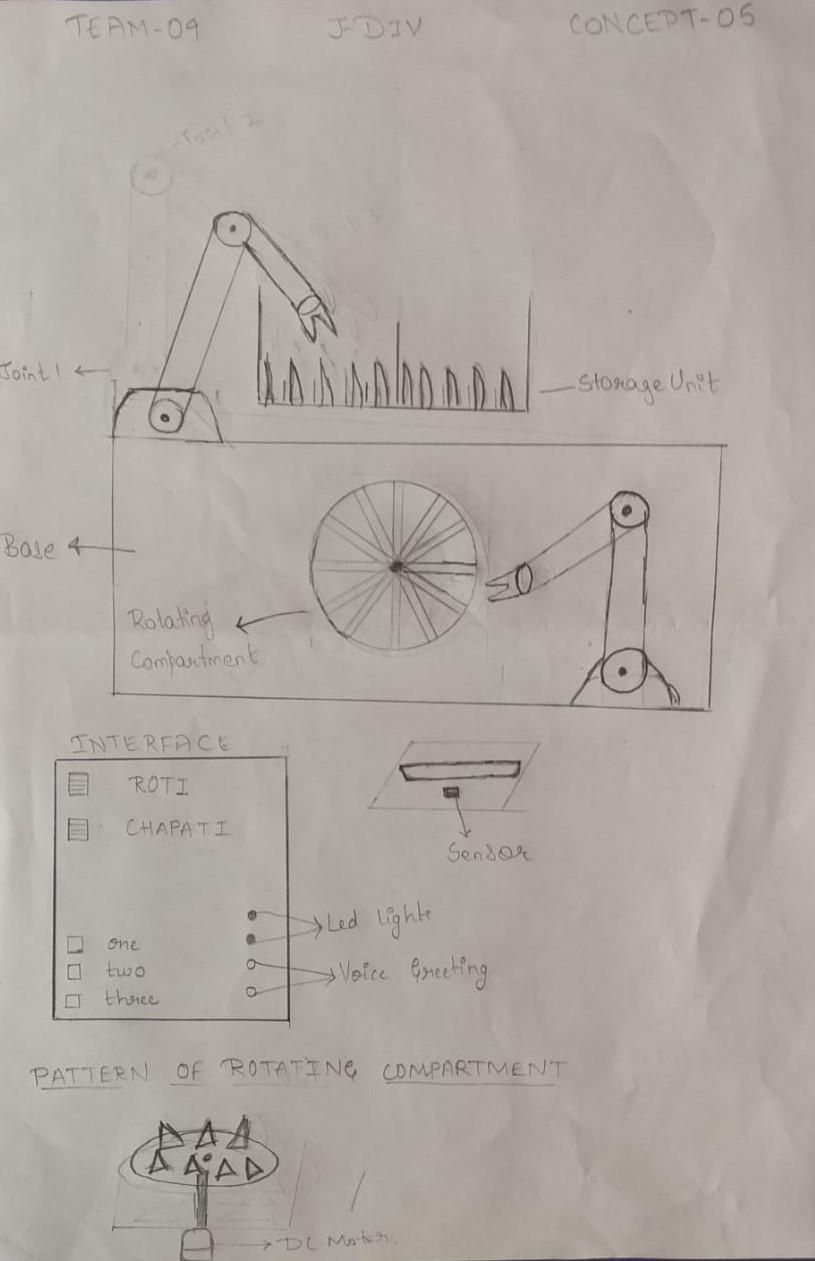 TEAM-09 J-DIV CONCEPT-05
Joint 2
Joint 1
Storage Unit
Base
Rotating
Compartment
INTERFACE
ROTI
CHAPATI
Sensor
Led lights
one
two
Voice Greeting
three
PATTERN OF ROTATING COMPARTMENT
DC Motor.